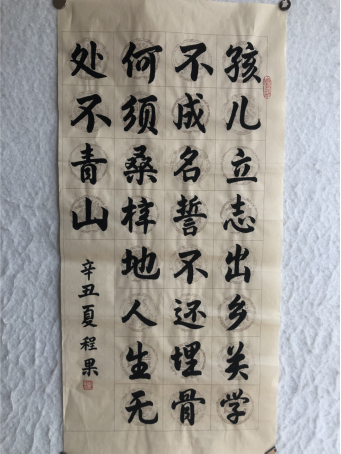 孩儿立志出乡关学
不成名誓不还埋骨
何须桑梓地人生无
处不青山
辛丑夏程果